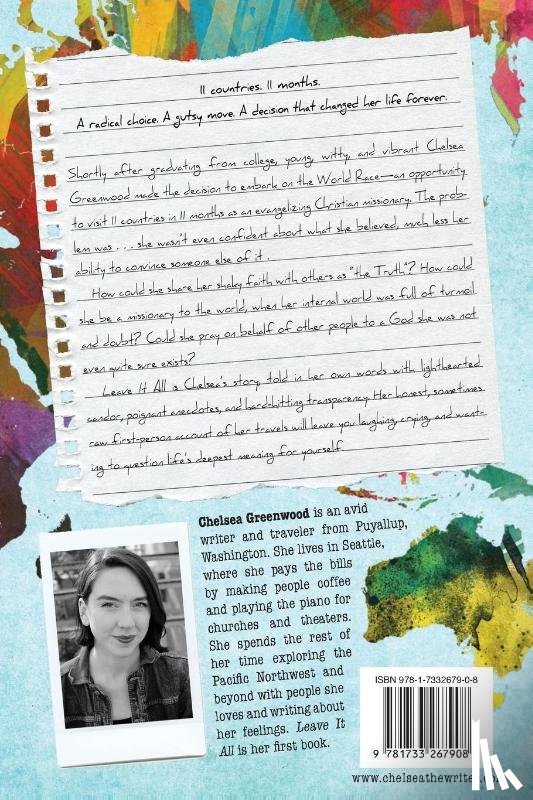 11 countries. 11 months.
A radical choice. A gutsy move. A decision that changed her life forever.
Shortly after graduating from college, young, witty, and vibrant Chelsea
Greenwood made the decision to embark on the World Race—an opportunity
to visit 11 countries in 11 months as an evangelizing Christian missionary. The prob-
lem was . . . she wasn't even confident about what she believed, much less her
ability to convince someone else of it.
How could she share her shaky faith with others as "the Truth"? How could
she be a missionary to the world, when her internal world was full of turmoil
and doubt? Could she pray on behalf of other people to a God she was not
even quite sure exists?
Leave It All is Chelsea's story, told in her own words with lighthearted
candor, poignant anecdotes, and hard-hitting transparency. Her honest, sometimes
raw first-person account of her travels will leave you laughing, crying, and want-
ing to question life's deepest meaning for yourself.
Chelsea Greenwood is an avid
writer and traveler from Puyallup,
Washington. She lives in Seattle,
where she pays the bills
by making people coffee
and playing the piano for
churches and theaters.
She spends the rest of
her time exploring the
Pacific Northwest and
beyond with people she
loves and writing about
her feelings. Leave It
All is her first book.
ISBN 978-1-7332679-0-8
9 781733 267908